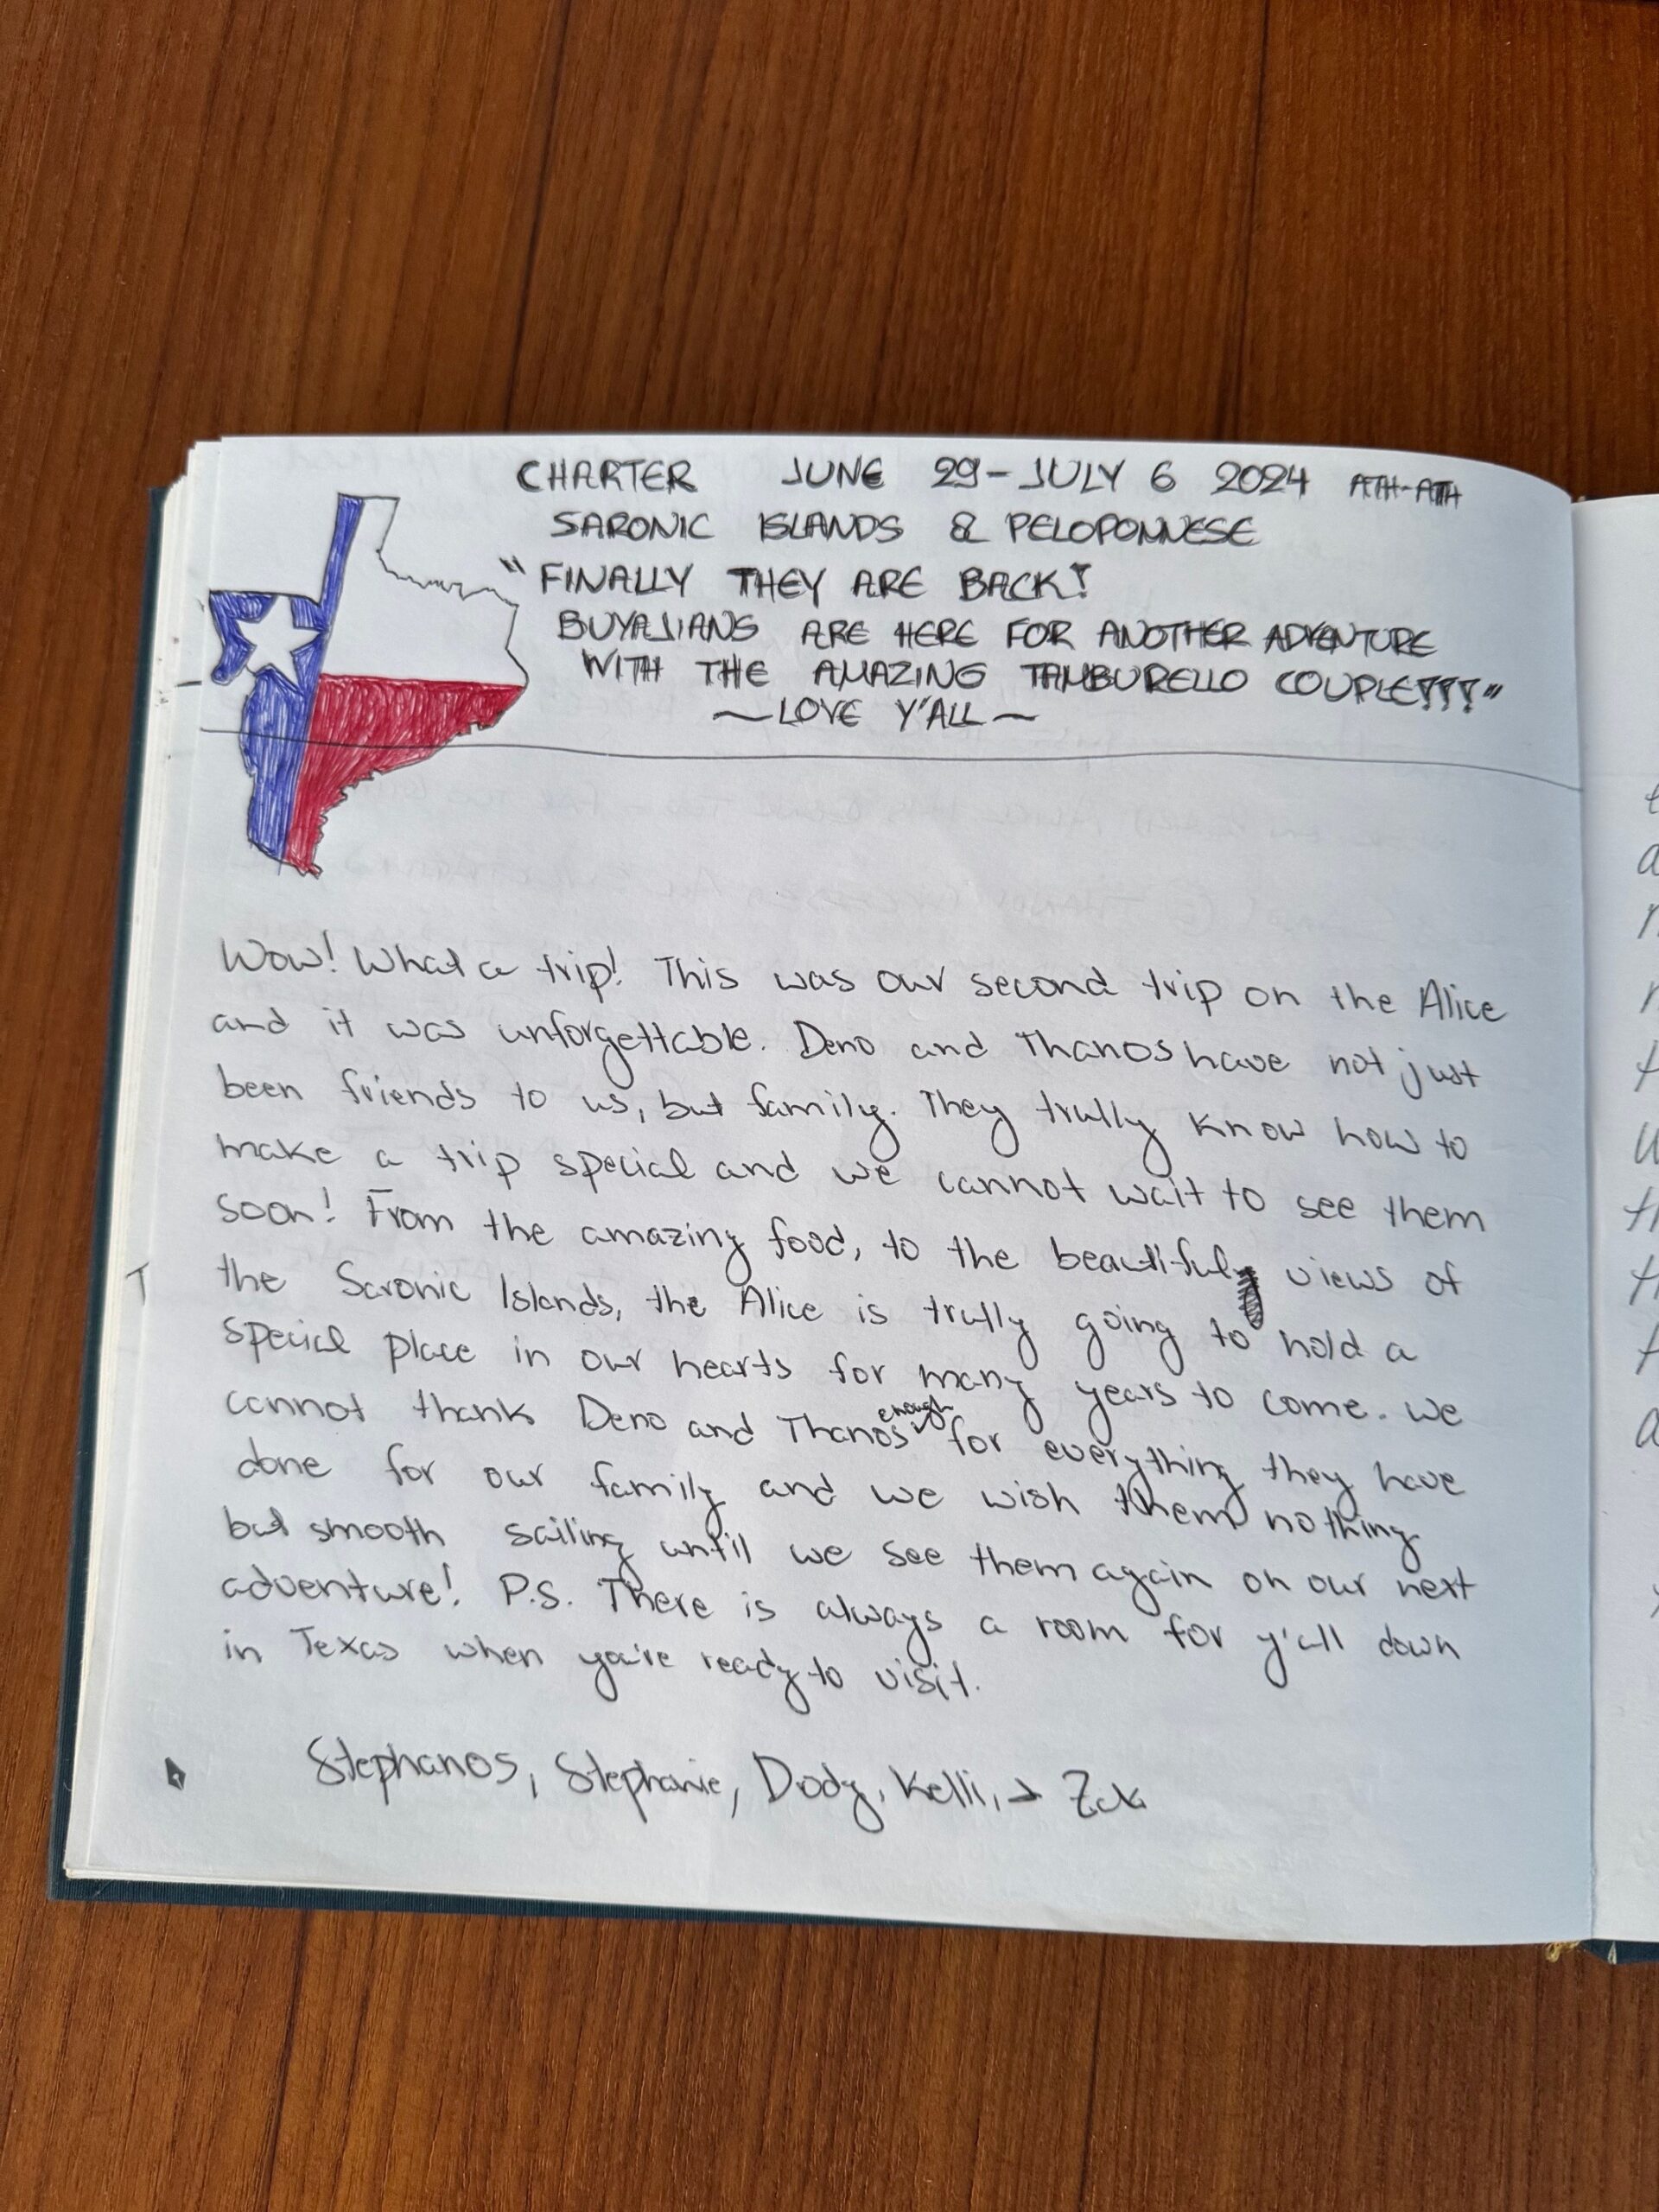 CHARTER JUNE 29-JULY 6 2024 ATH-ATH
SARONIC ISLANDS & PELOPONNESE
"FINALLY THEY ARE BACK!
BUYAJIANS ARE HERE FOR ANOTHER ADVENTURE
WITH THE AMAZING TAMBURELLO COUPLE!!!"
~LOVE Y'ALL~
Wow! What a trip! This was our second trip on the Alice
and it was unforgettable. Deno and Thanos have not just
been friends to us, but family. They trully know how to
make a trip special and we cannot wait to see them
soon! From the amazing food, to the beautiful views of
the Saronic Islands, the Alice is trully going to hold a
special place in our hearts for many years to come. We
cannot thank Deno and Thanos enough for everything they have
done for our family and we wish them nothing
but smooth sailing until we see them again on our next
adventure! P.S. There is always a room for y'all down
in Texas when you're ready to visit.
Stephanos, Stephanie, Dody, Kelli,